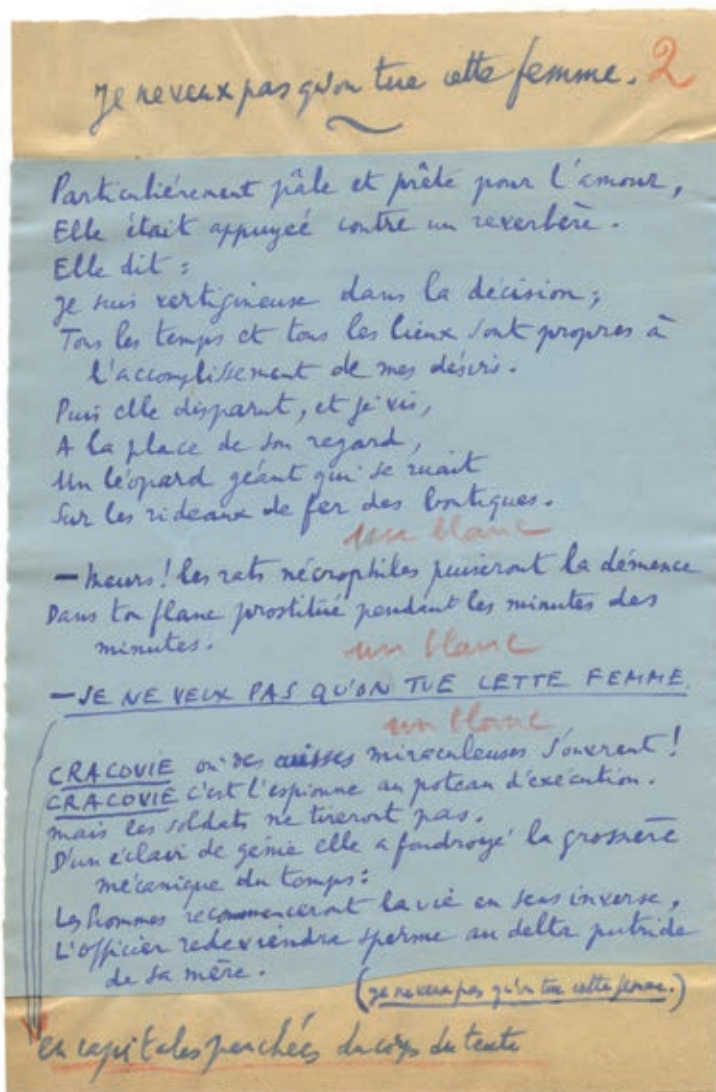 Je ne veux pas qu'on tue cette femme. 2
Particulièrement pâle et prête pour l'amour,
Elle était appuyeé contre un reverbère.
Elle dit :
Je suis vertigineuse dans la décision ;
Tous les temps et tous les lieux sont propres à
l'accomplissement de mes désirs.
Puis elle disparut, et je vis,
A la place de son regard,
Un léopard géant qui se ruait
Sur les rideaux de fer des boutiques.
un blanc
— Meurs ! les rats nécrophiles puiseront la démence
Dans ton flanc prostitué pendant les minutes des
minutes.
un blanc
— JE NE VEUX PAS QU'ON TUE CETTE FEMME.
un blanc
CRACOVIE où des cuisses miraculeuses s'ouvrent !
CRACOVIE c'est l'espionne au poteau d'exécution.
Mais les soldats ne tireront pas.
D'un éclair de génie elle a foudroyé la grossière
mécanique du temps :
Les hommes recommenceront la vie en sens inverse,
L'officier redeviendra sperme au delta putride
de sa mère.
(Je ne veux pas qu'on tue cette femme.)
en capitales penchées du corps du texte